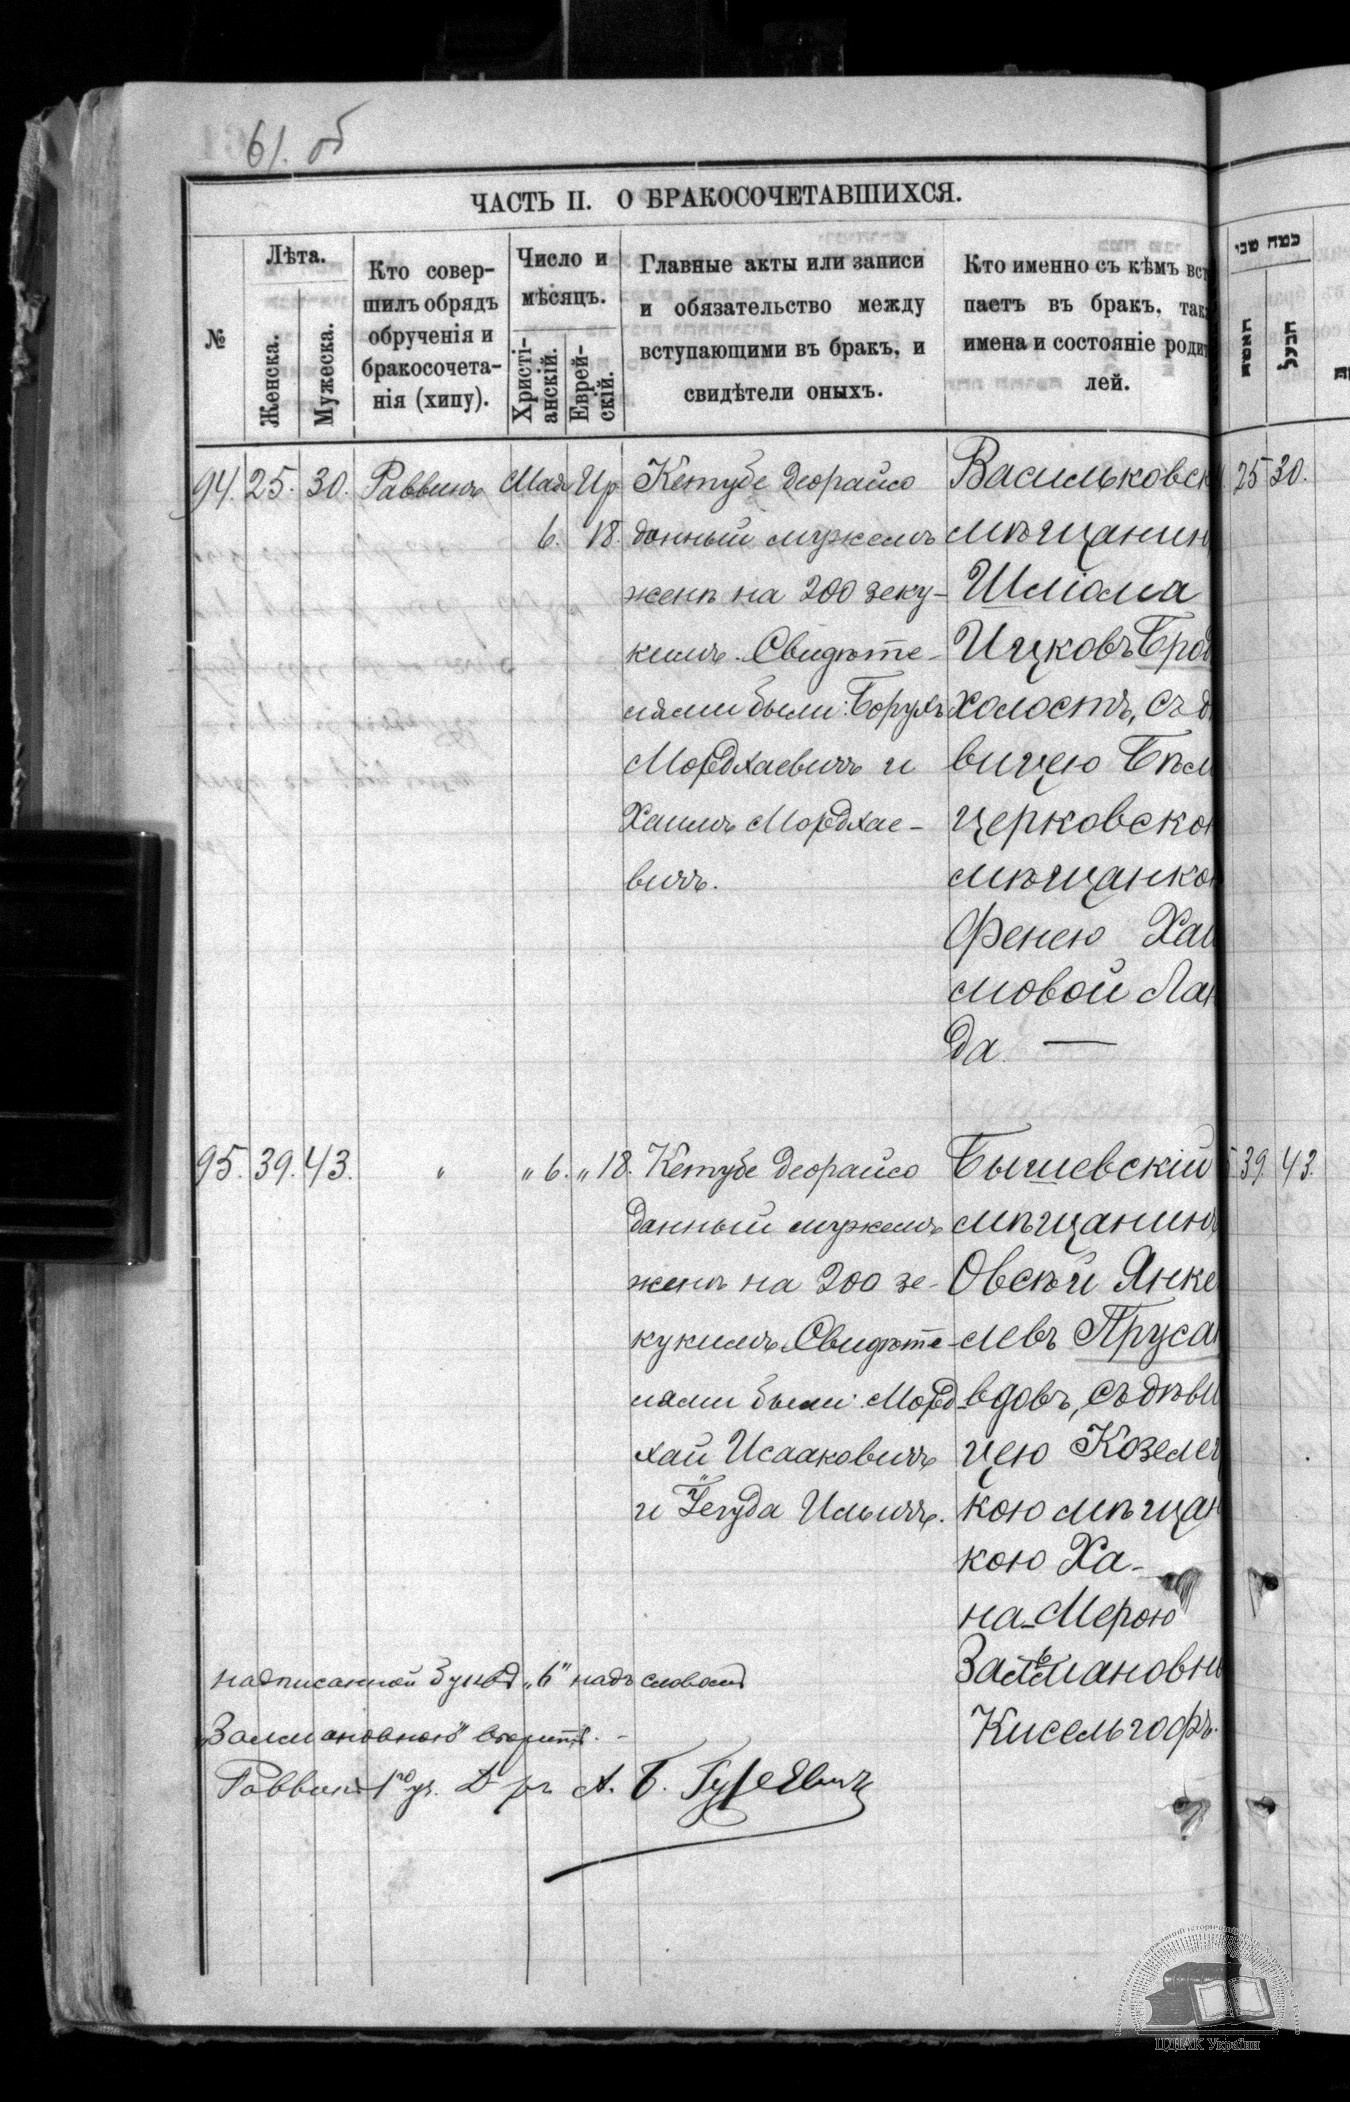 61. об
ЧАСТЬ II. О БРАКОСОЧЕТАВШИХСЯ.
№
Лѣта.
Женска.
Мужеска.
Кто совер-
шилъ обрядъ
обрученія и
бракосочета-
нія (хипу).
Число и
мѣсяцъ.
Христі-
анскій.
Еврей-
скій.
Главные акты или записи
и обязательство между
вступающими въ бракъ, и
свидѣтели оныхъ.
Кто именно съ кѣмъ вст
паетъ въ бракъ, так
имена и состояніе роди
лей.
94. 25. 30. Раввинъ Мая 6. Ир 18.
Кетубе деорайсо
данный мужемъ
женѣ на 200 зеку-
кимъ. Свидѣте-
лями были: Борухъ
Мордхаевичъ и
Хаимъ Мордхае-
вичъ.
Васильковск
мѣщанин
Шліома
Ицковъ Брод
холостъ, съ д
вицею Бѣл
церковско
мѣщанко
Фенею Хаи
мовой Лан
да. —
25 30.
95. 39. 43. " " 6. " 18.
Кетубе деорайсо
данный мужемъ
женѣ на 200 зе-
кукимъ. Свидѣте-
лями были: Морд-
хай Исааковичъ
и Іегуда Ильичъ.
Бышевскій
мѣщанинъ
Овсѣй Янке
левъ Прусак
вдовъ, съ дѣви
цею Козелец
кою мѣщан
кою Ха-
на-Мерою
Залмановн
Кисельгофъ.
39. 43.
надписанной букво „ь“ надъ словомъ
„Залмановною“ вѣрить. -
Раввин 1го уч. Д-ръ А. Б. Гуревичъ
כמה שני
האשה
הבעל
ЦДІАК України